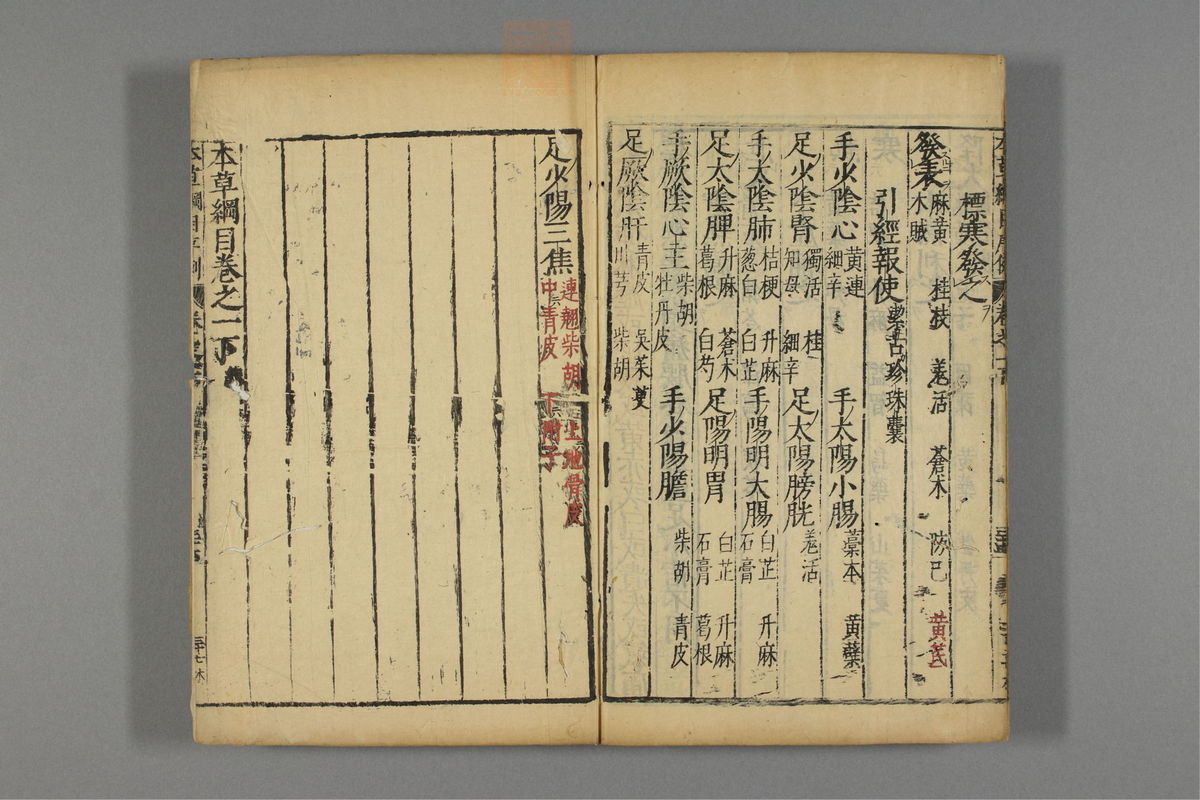 標寒發之
發表 麻黄 桂枝 羗活 蒼木 防已 黄芪
木賊
引經報使 潔古珍珠囊
手少陰心 黄連 細辛 手太陽小腸 藁本 黄蘗
足少陰腎 獨活 桂 知母 細辛 足太陽膀胱 羗活
手太陰肺 桔梗 升麻 葱白 白芷 手陽明大腸 白芷 升麻 石膏
足太陰脾 升麻 蒼木 葛根 白芍 足陽明胃 白芷 升麻 石膏 葛根
手厥陰心主 柴胡 牡丹皮 手少陽膽 柴胡 青皮
足厥陰肝 青皮 吳茱萸 川芎 柴胡
足少陽三焦 連翹 柴胡 上地骨皮 中青皮 下附子
本草綱目卷之一下